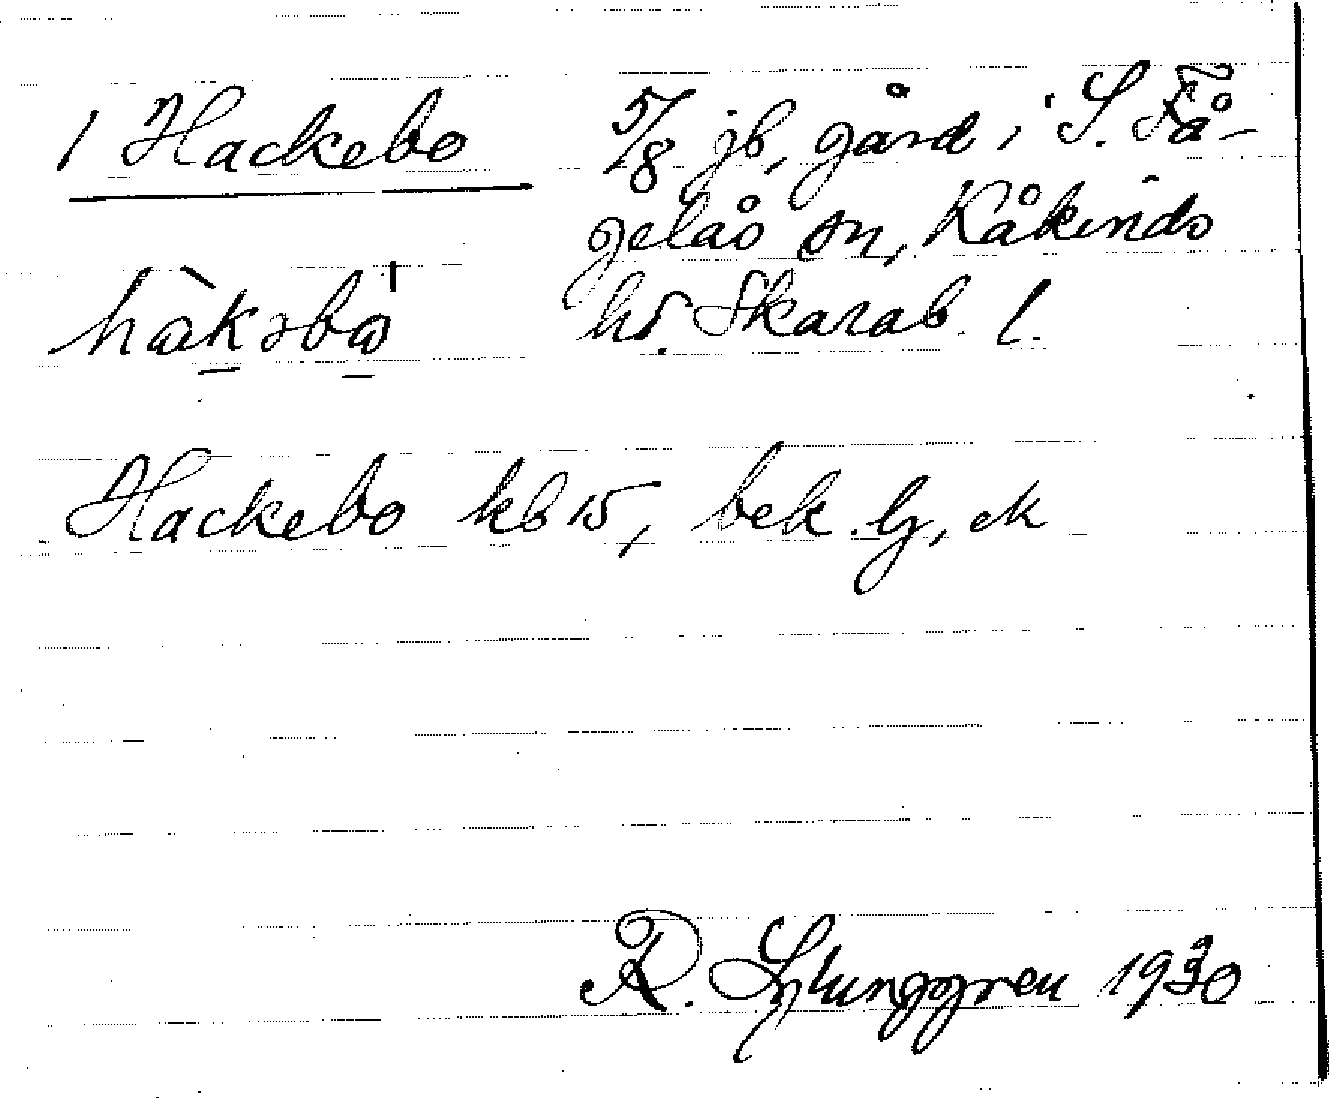 1 Hackebo 5/8 jb, gård i S. Få-
gelås sn, Kåkinds
hd. Skarab. l.
hàkəbω̍
Hackebo kb 15, bek. lj, ek
R. Ljunggren 1930